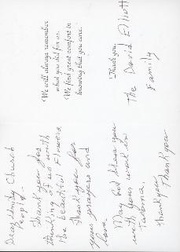 We will always remember
what you did for us.
We find great comfort in
knowing that you care.
Thank you
The David Elliott
Family
Dear Church
People,
Thank you for
thinking of us with
the beautiful flowers
Thank you for
your prayers and
love.
May God bless you
with your work in
Thank you
Thank you